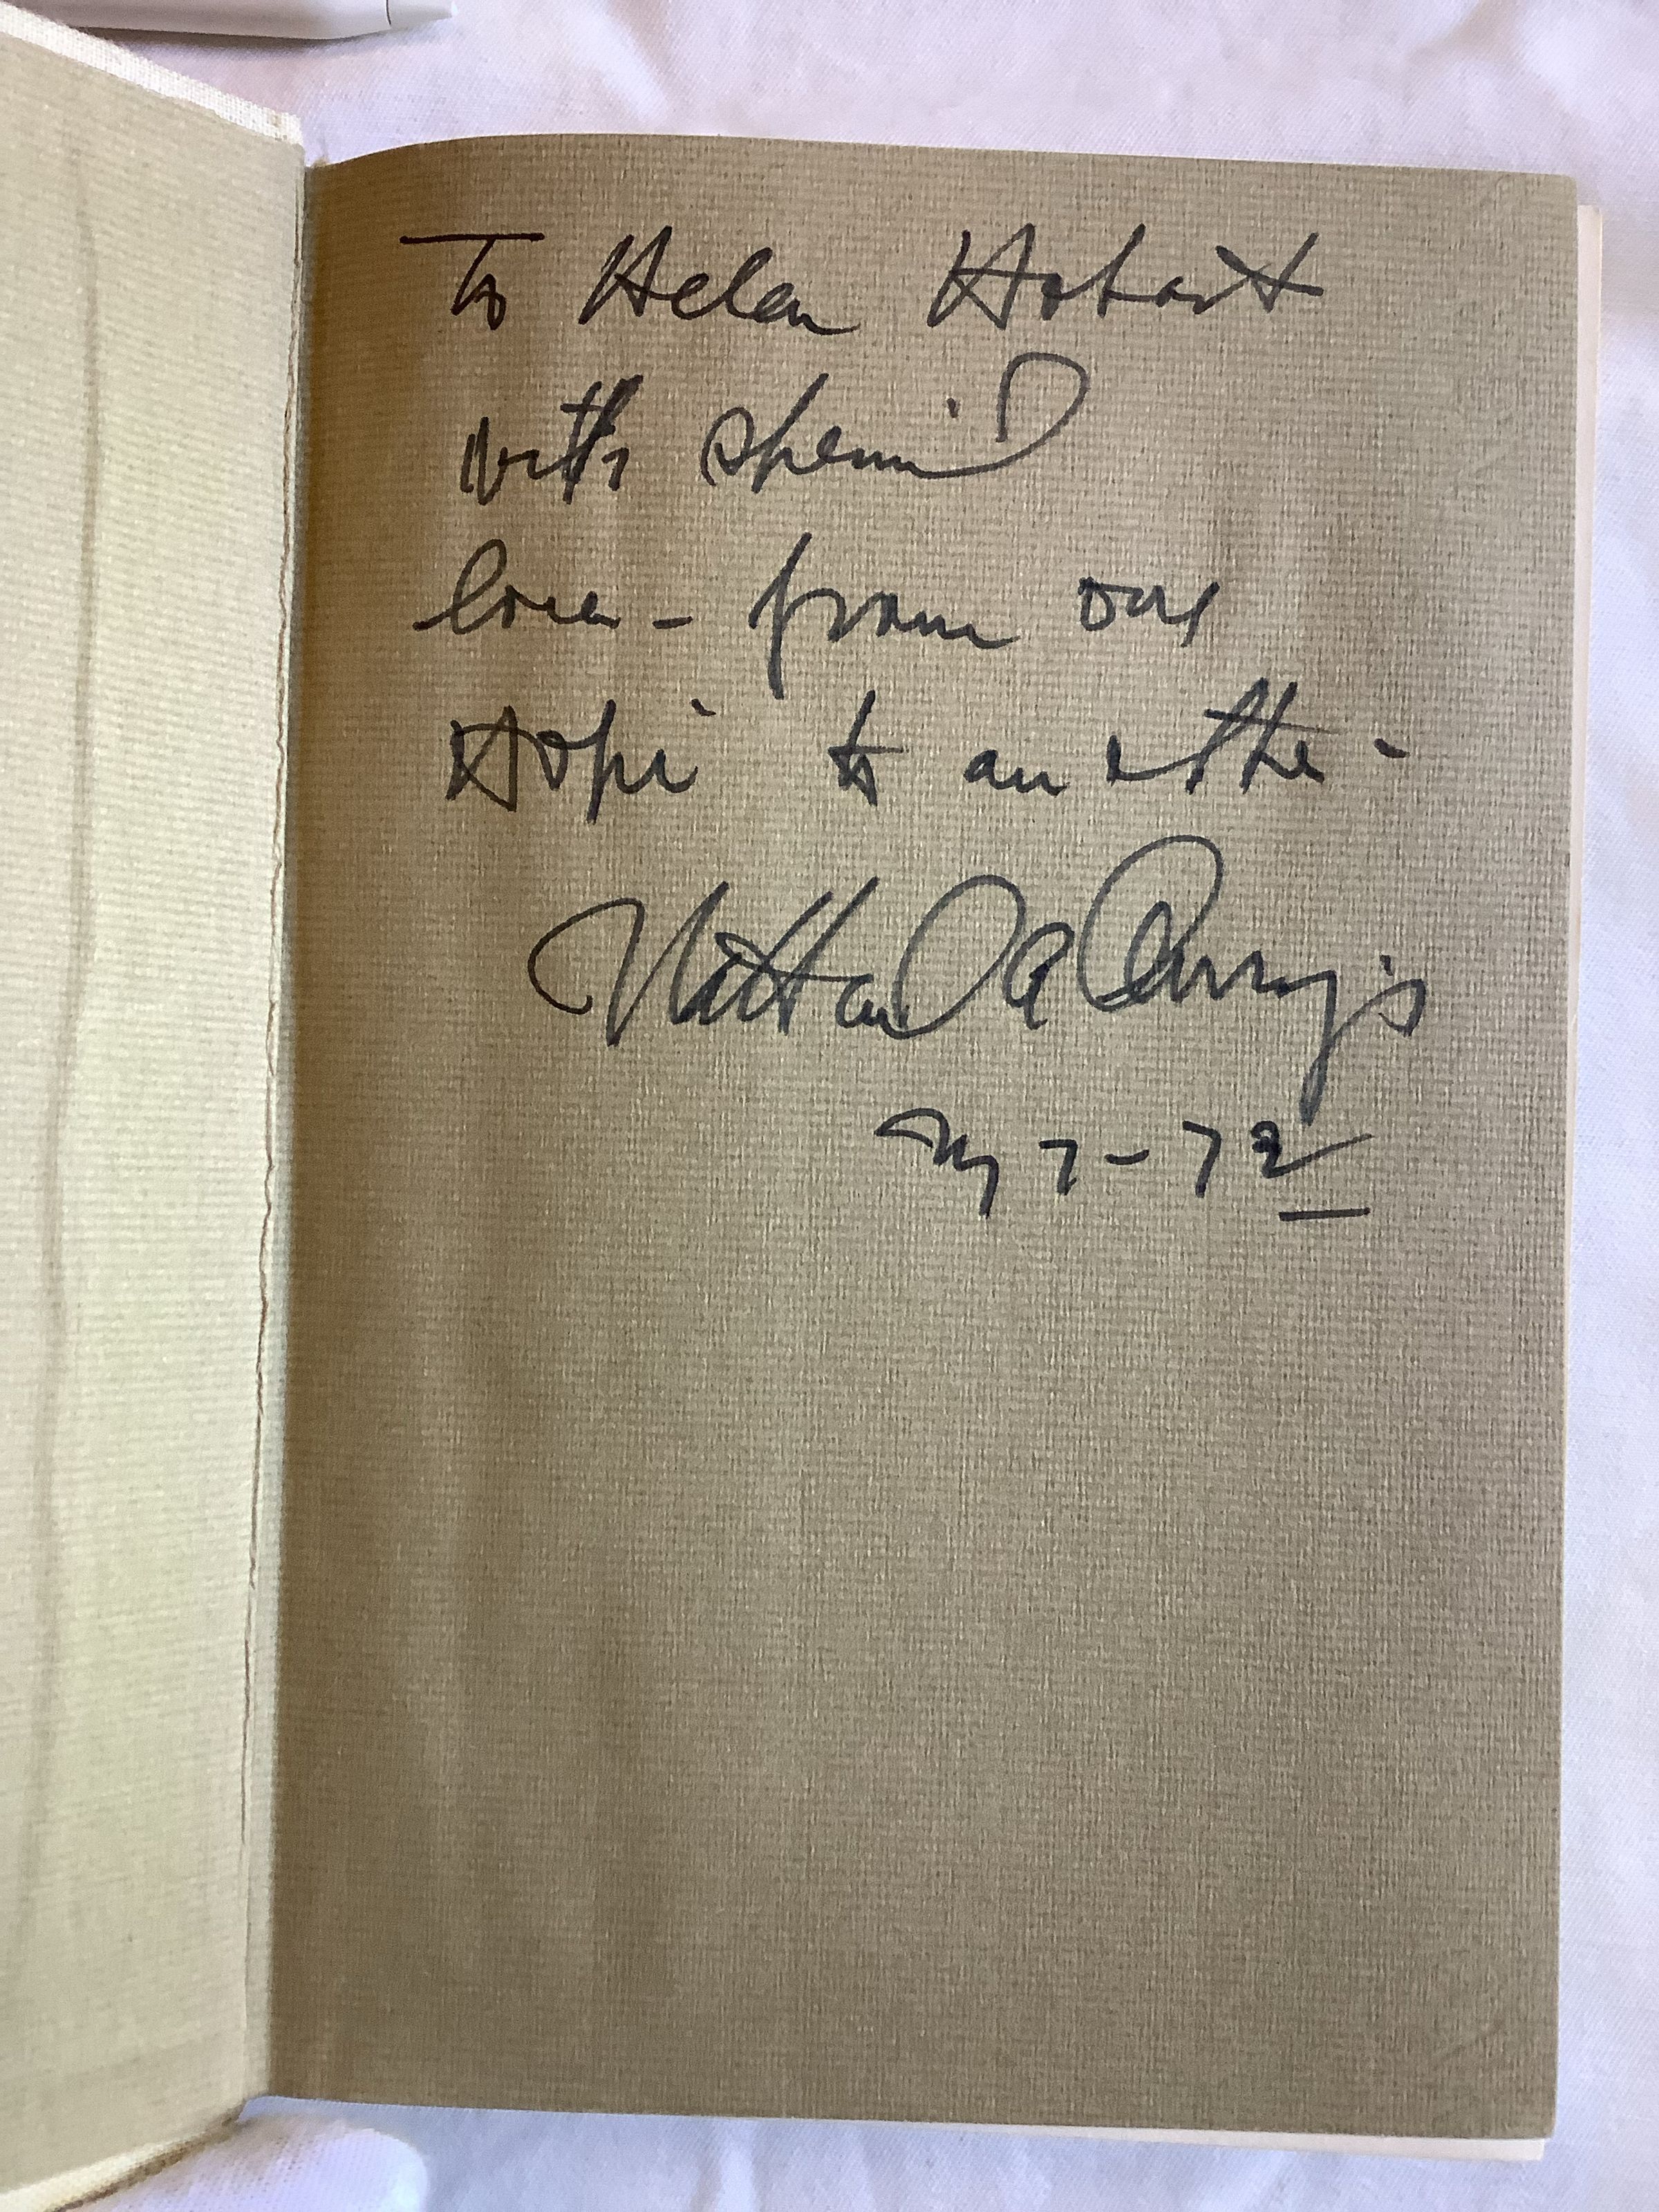 To Helen Hobart
with special
love - from one
Hopi to another -
Natta
My 7-72